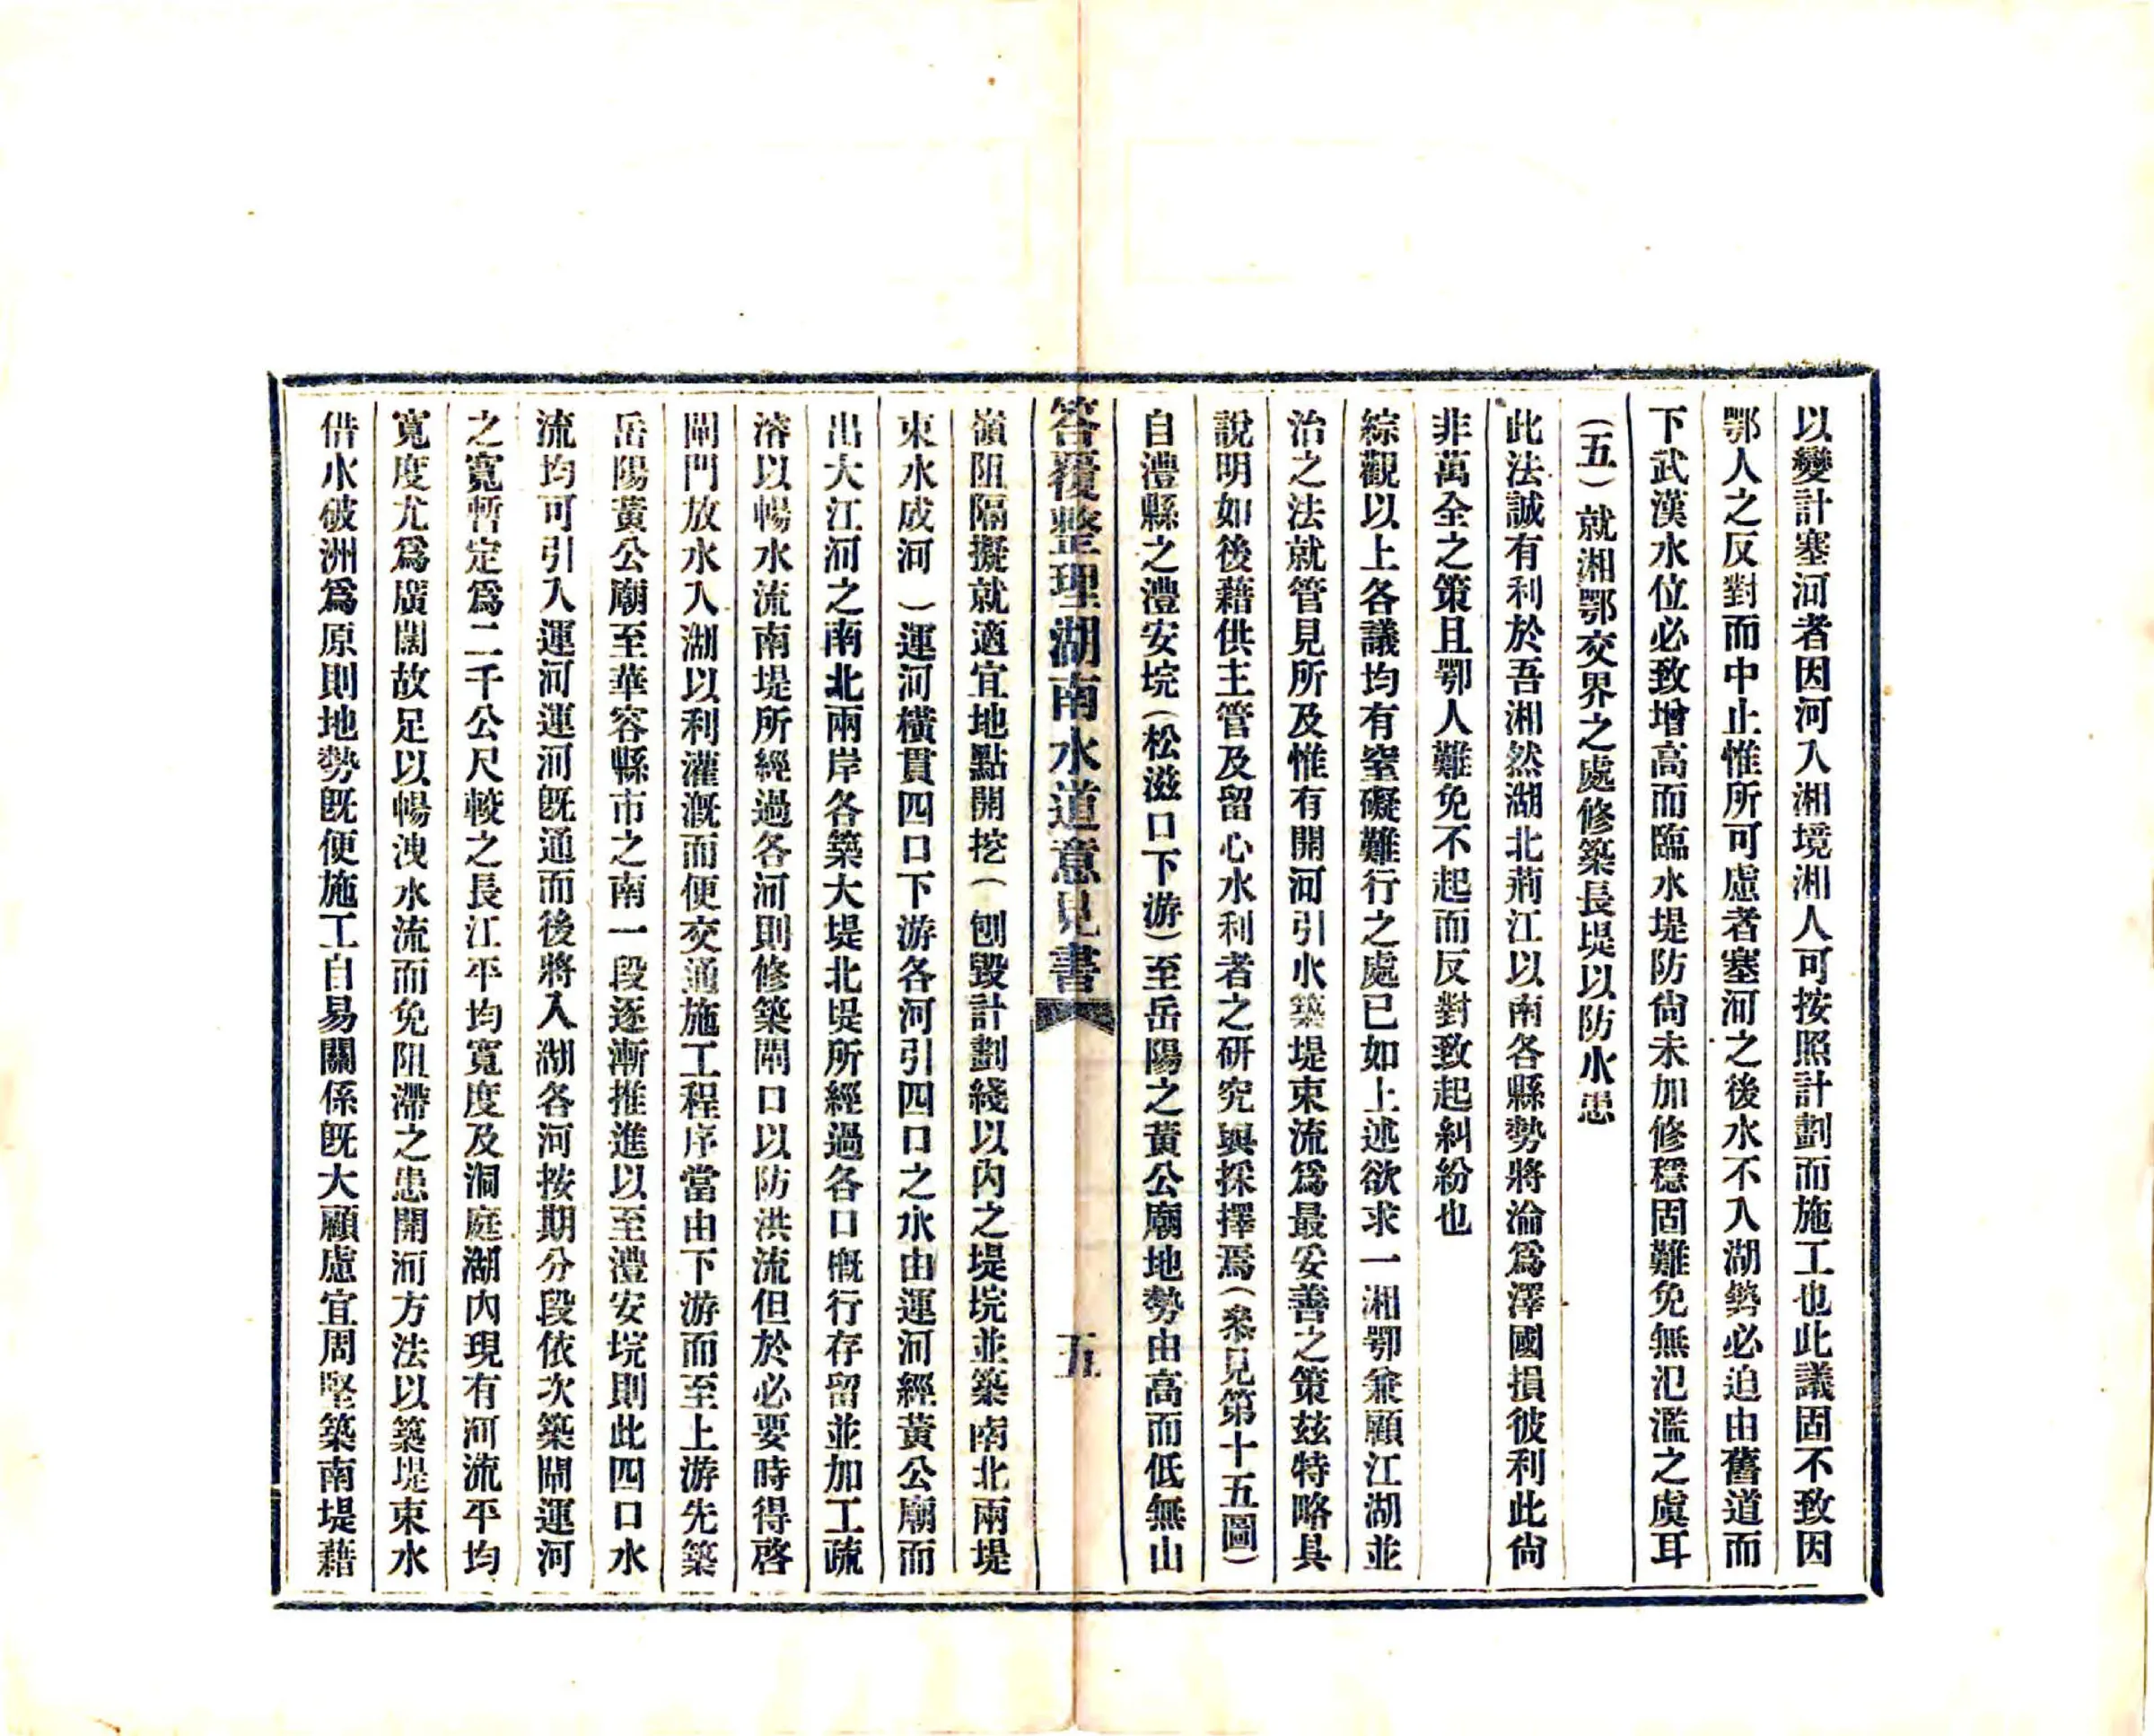 以變計塞河者因河入湘境湘人可按照計劃而施工也此議固不致因
鄂人之反對而中止惟所可慮者塞河之後水不入湖勢必迫由舊道而
下武漢水位必致增高而臨水堤防尙未加修穩固難免無氾濫之虞耳
(五)就湘鄂交界之處修築長堤以防水患
此法誠有利於吾湘然湖北荊江以南各縣勢將淪爲澤國損彼利此尙
非萬全之策且鄂人難免不起而反對致起糾紛也
綜觀以上各議均有窒礙難行之處已如上述欲求一湘鄂兼顧江湖並
治之法就管見所及惟有開河引水築堤束流爲最妥善之策玆特略具
說明如後藉供主管及留心水利者之硏究與採擇焉(叅見第十五圖)
自澧縣之澧安垸(松滋口下游)至岳陽之黃公廟地勢由高而低無山
答覆整理湖南水道意見書
五
嶺阻隔擬就適宜地點開挖(刨毀計劃綫以內之堤垸並築南北兩堤
束水成河)運河橫貫四口下游各河引四口之水由運河經黃公廟而
出大江河之南北兩岸各築大堤北堤所經過各口槪行存留並加工疏
濬以暢水流南堤所經過各河則修築閘口以防洪流但於必要時得啓
閘門放水入湖以利灌漑而便交通施工程序當由下游而至上游先築
岳陽黃公廟至華容縣市之南一段逐漸推進以至澧安垸則此四口水
流均可引入運河運河旣通而後將入湖各河按期分段依次築閘運河
之寬暫定爲二千公尺較之長江平均寬度及洞庭湖內現有河流平均
寬度尤爲廣闊故足以暢洩水流而免阻滯之患開河方法以築堤束水
借水破洲爲原則地勢旣便施工自易關係旣大顧慮宜周堅築南堤藉